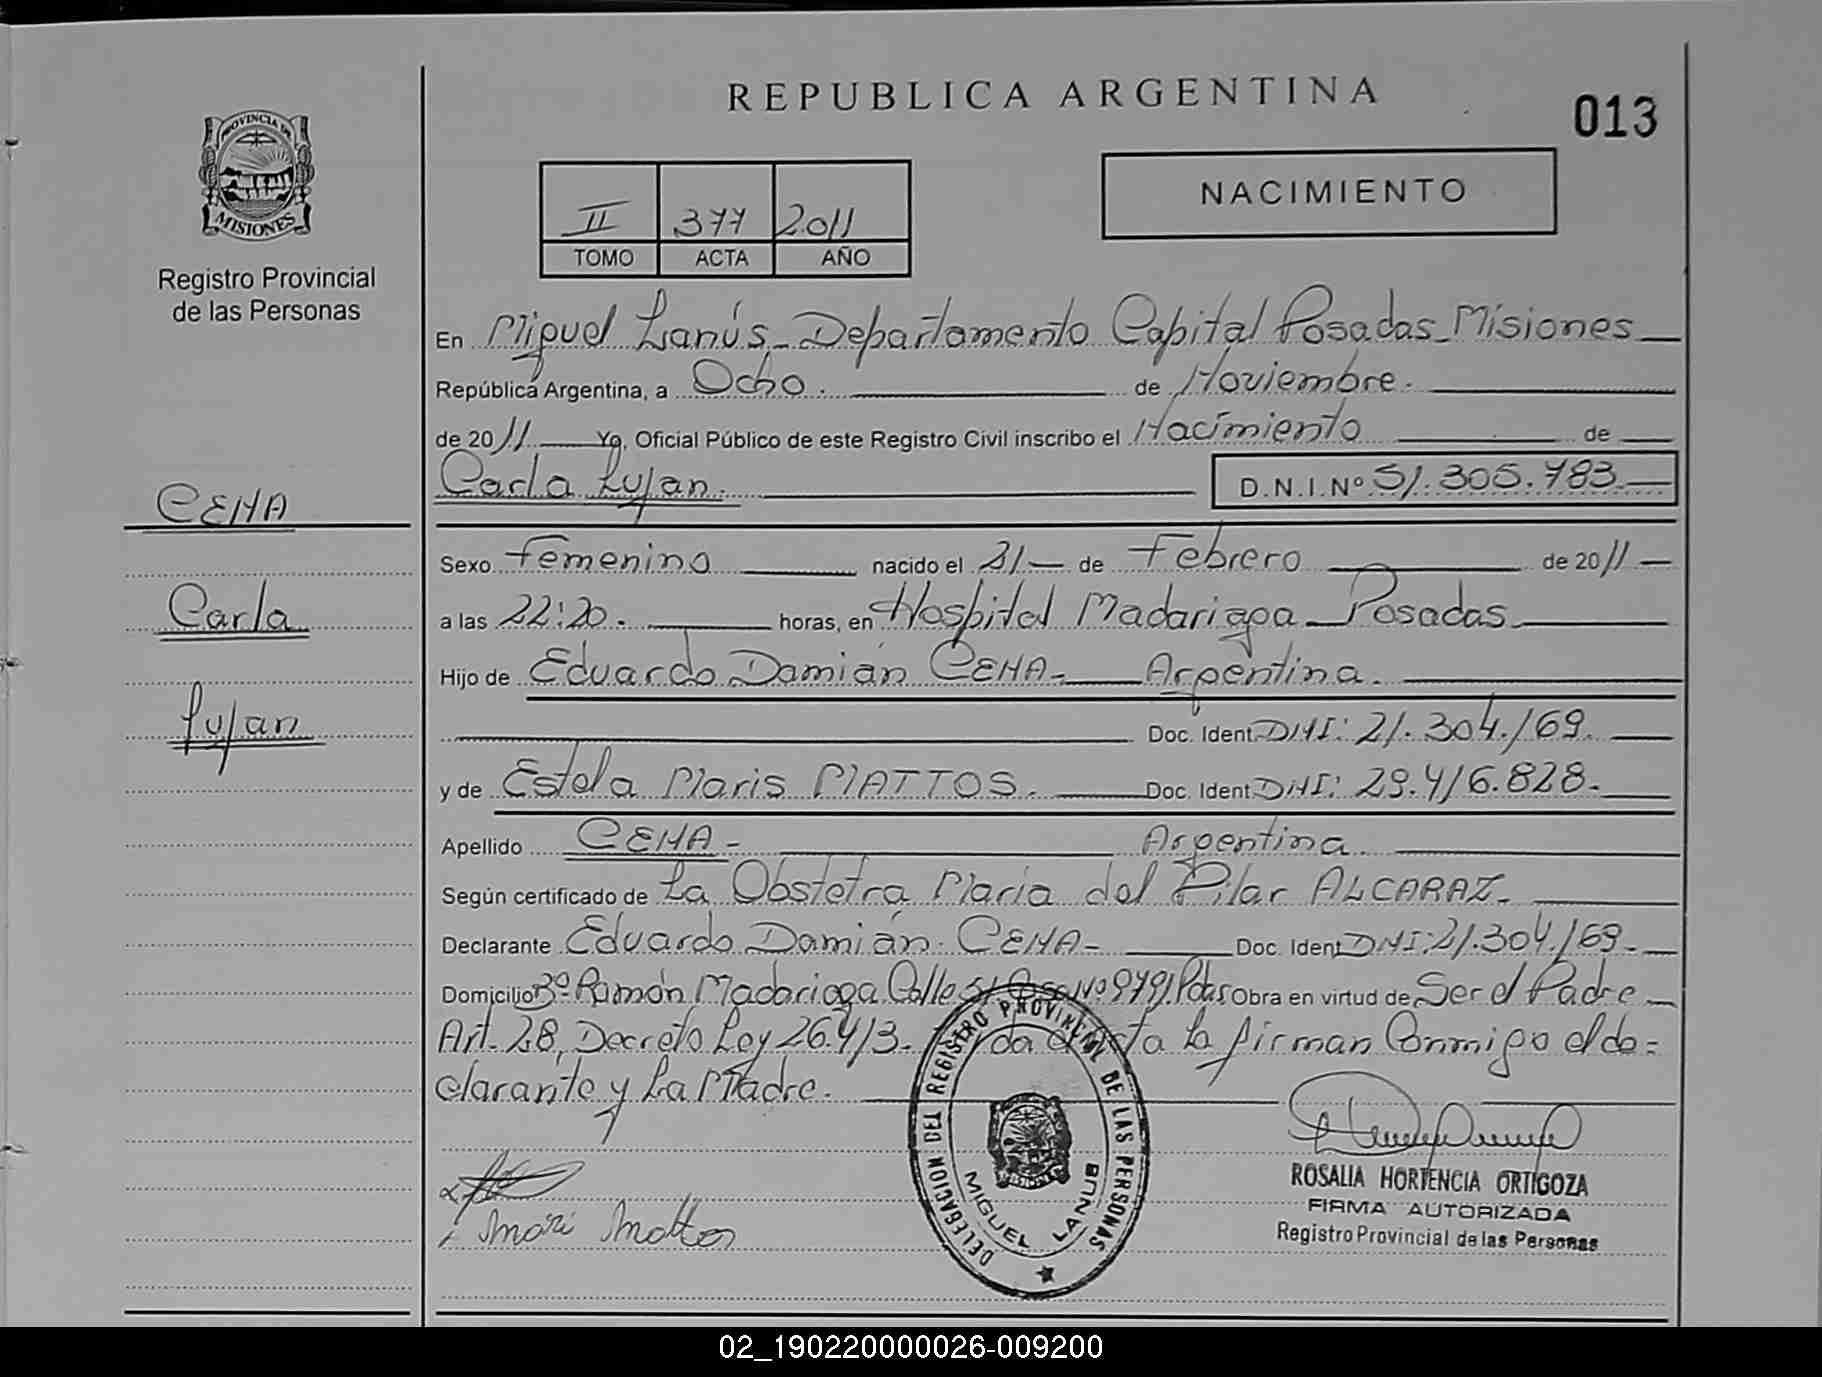 REPUBLICA ARGENTINA
013
PROVINCIA DE
MISIONES
Registro Provincial
de las Personas
NACIMIENTO
II 377 2011
TOMO ACTA AÑO
En Miguel Lanús - Departamento Capital Posadas - Misiones
República Argentina, a Ocho. de Noviembre.
de 2011 Yo, Oficial Público de este Registro Civil inscribo el Nacimiento de
Carla Lujan. D.N.I.Nº 51.305.783
CENA
Carla
Lujan
Sexo Femenino nacido el 21 de Febrero de 2011
a las 22:20. horas, en Hospital Madariaga Posadas
Hijo de Eduardo Damián CENA - Argentina.
Doc. Ident. DNI: 21.304.169.
y de Estela Maris MATTOS. Doc. Ident. DNI: 29.416.828.-
Apellido CENA - Argentina
Según certificado de La Obstetra Maria del Pilar ALCARAZ -
Declarante Eduardo Damián CENA - Doc. Ident. DNI: 21.304.169 -
Domicilio Bº Ramón Madariaga Calle Nº 9791 Pdas Obra en virtud de Ser el Padre
Art. 28, Decreto Ley 26.413. el Acta La firman Conmigo el de=
clarante y La Madre.
DELEGACION DEL REGISTRO PROVINCIAL DE LAS PERSONAS
MIGUEL LANUS
Mari Mattos
ROSALIA HORTENCIA ORTIGOZA
FIRMA AUTORIZADA
Registro Provincial de las Personas
02_190220000026-009200